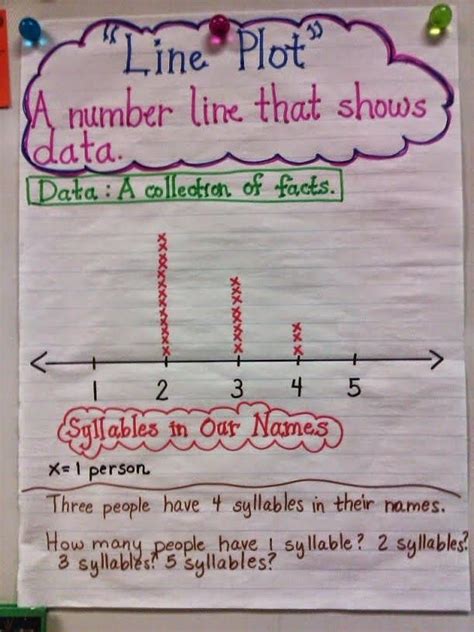 "Line Plot"
A number line that shows
data.
Data: A collection of facts.
1 2 3 4 5
Syllables in Our Names
x=1 person
Three people have 4 syllables in their names.
How many people have 1 syllable? 2 syllables?
3 syllables? 5 syllables?